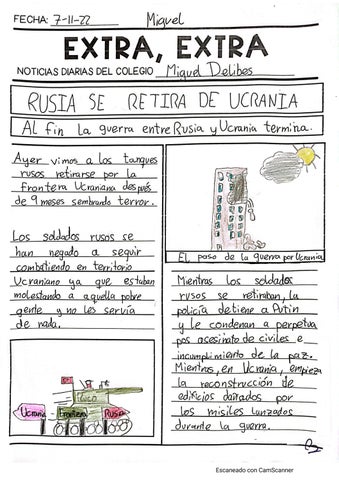 FECHA: 7-11-22 Miguel
EXTRA, EXTRA
NOTICIAS DIARIAS DEL COLEGIO Miguel Delibes
RUSIA SE RETIRA DE UCRANIA
Al fin la guerra entre Rusia y Ucrania termina.
Ayer vimos a los tanques
rusos retirarse por la
frontera Ucraniana después
de 9 meses sembrando terror.
Los soldados rusos se
han negado a seguir
combatiendo en territorio
Ucraniano ya que estaban
molestando a aquella pobre
gente y no les servía
de nada.
Ucrania Frontera Rusia
El paso de la guerra por Ucrania
Mientras los soldados
rusos se retiraban, la
policía detiene a Putin
y le condenan a perpetua
pos asesinato de civiles e
incumplimiento de la paz.
Mientras, en Ucrania, empieza
la reconstrucción de
edificios dañados por
los misiles lanzados
durante la guerra.
Escaneado con CamScanner